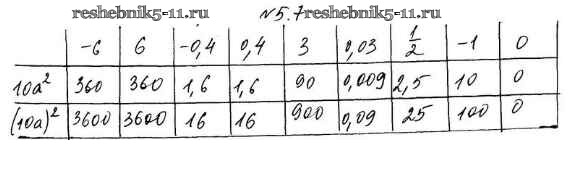 reshebnik5-11.ru №5.7
-6 6 -0,4 0,4 3 0,03 1/2 -1 0
10a² 360 360 1,6 1,6 90 0,009 2,5 10 0
(10a)² 3600 3600 16 16 900 0,09 25 100 0
reshebnik5-11.ru